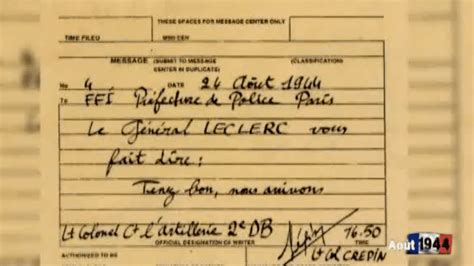 THESE SPACES FOR MESSAGE CENTER ONLY
TIME FILED MSG CEN
MESSAGE (SUBMIT TO MESSAGE CENTER IN DUPLICATE) (CLASSIFICATION)
No 4 DATE 24 Août 1944
To FFI Préfecture de Police Paris
Le Général LECLERC vous
fait dire :
Tenez bon, nous arrivons
Lt Colonel Ct l'artillerie 2e DB 16.50
OFFICIAL DESIGNATION OF WRITER TIME
AUTHORIZED TO Lt Col CREPIN
Août 1944